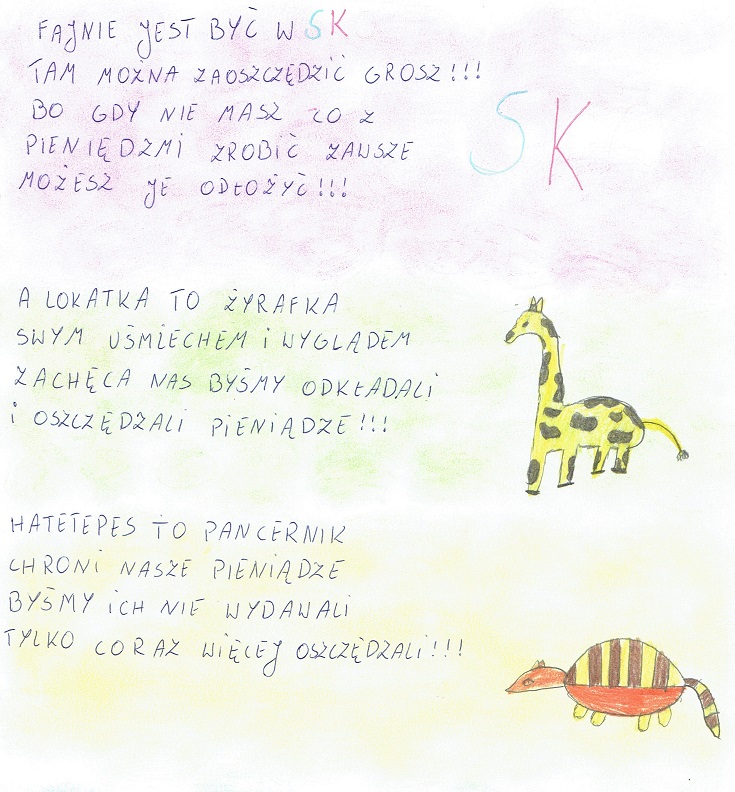 FAJNIE JEST BYĆ W SK
TAM MOŻNA ZAOSZCZĘDZIĆ GROSZ!!!
BO GDY NIE MASZ CO Z
PIENIĘDZMI ZROBIĆ ZAWSZE
MOŻESZ JE ODŁOŻYĆ!!!
SK
A LOKATKA TO ŻYRAFKA
SWYM UŚMIECHEM i WYGLĄDEM
ZACHĘCA NAS BYŚMY ODKŁADALI
i OSZCZĘDZALI PIENIĄDZE!!!
HATETEPES TO PANCERNIK
CHRONi NASZE PIENIĄDZE
BYŚMY iCH NIE WYDAWALi
TYLKO CORAZ WIĘCEJ OSZCZĘDZALi!!!